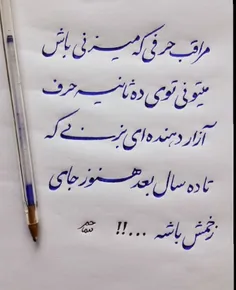 مراقب حرفی که میزنی باش
میتونی توی ده ثانیه حرف
آزار دهنده ای بزنی که
تا ده سال بعد هنوز جای
زخمش باشه ...!!